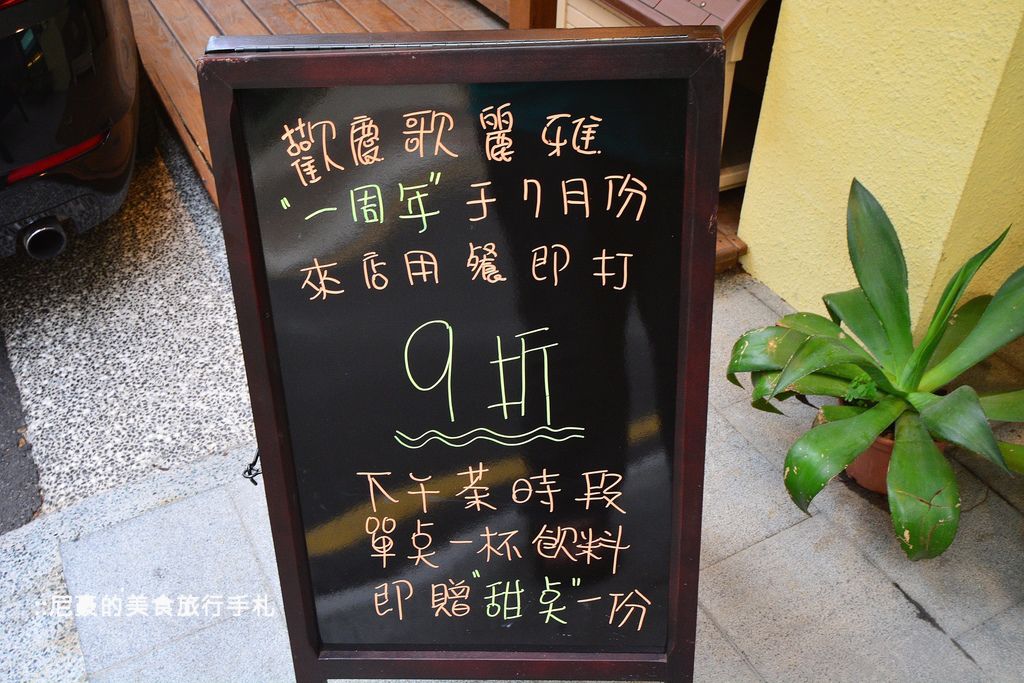 歡慶歌麗雅
"一周年"于7月份
來店用餐即打
9折
下午茶時段
單桌一杯飲料
即贈"甜桌"一份
尼豪的美食旅行手札